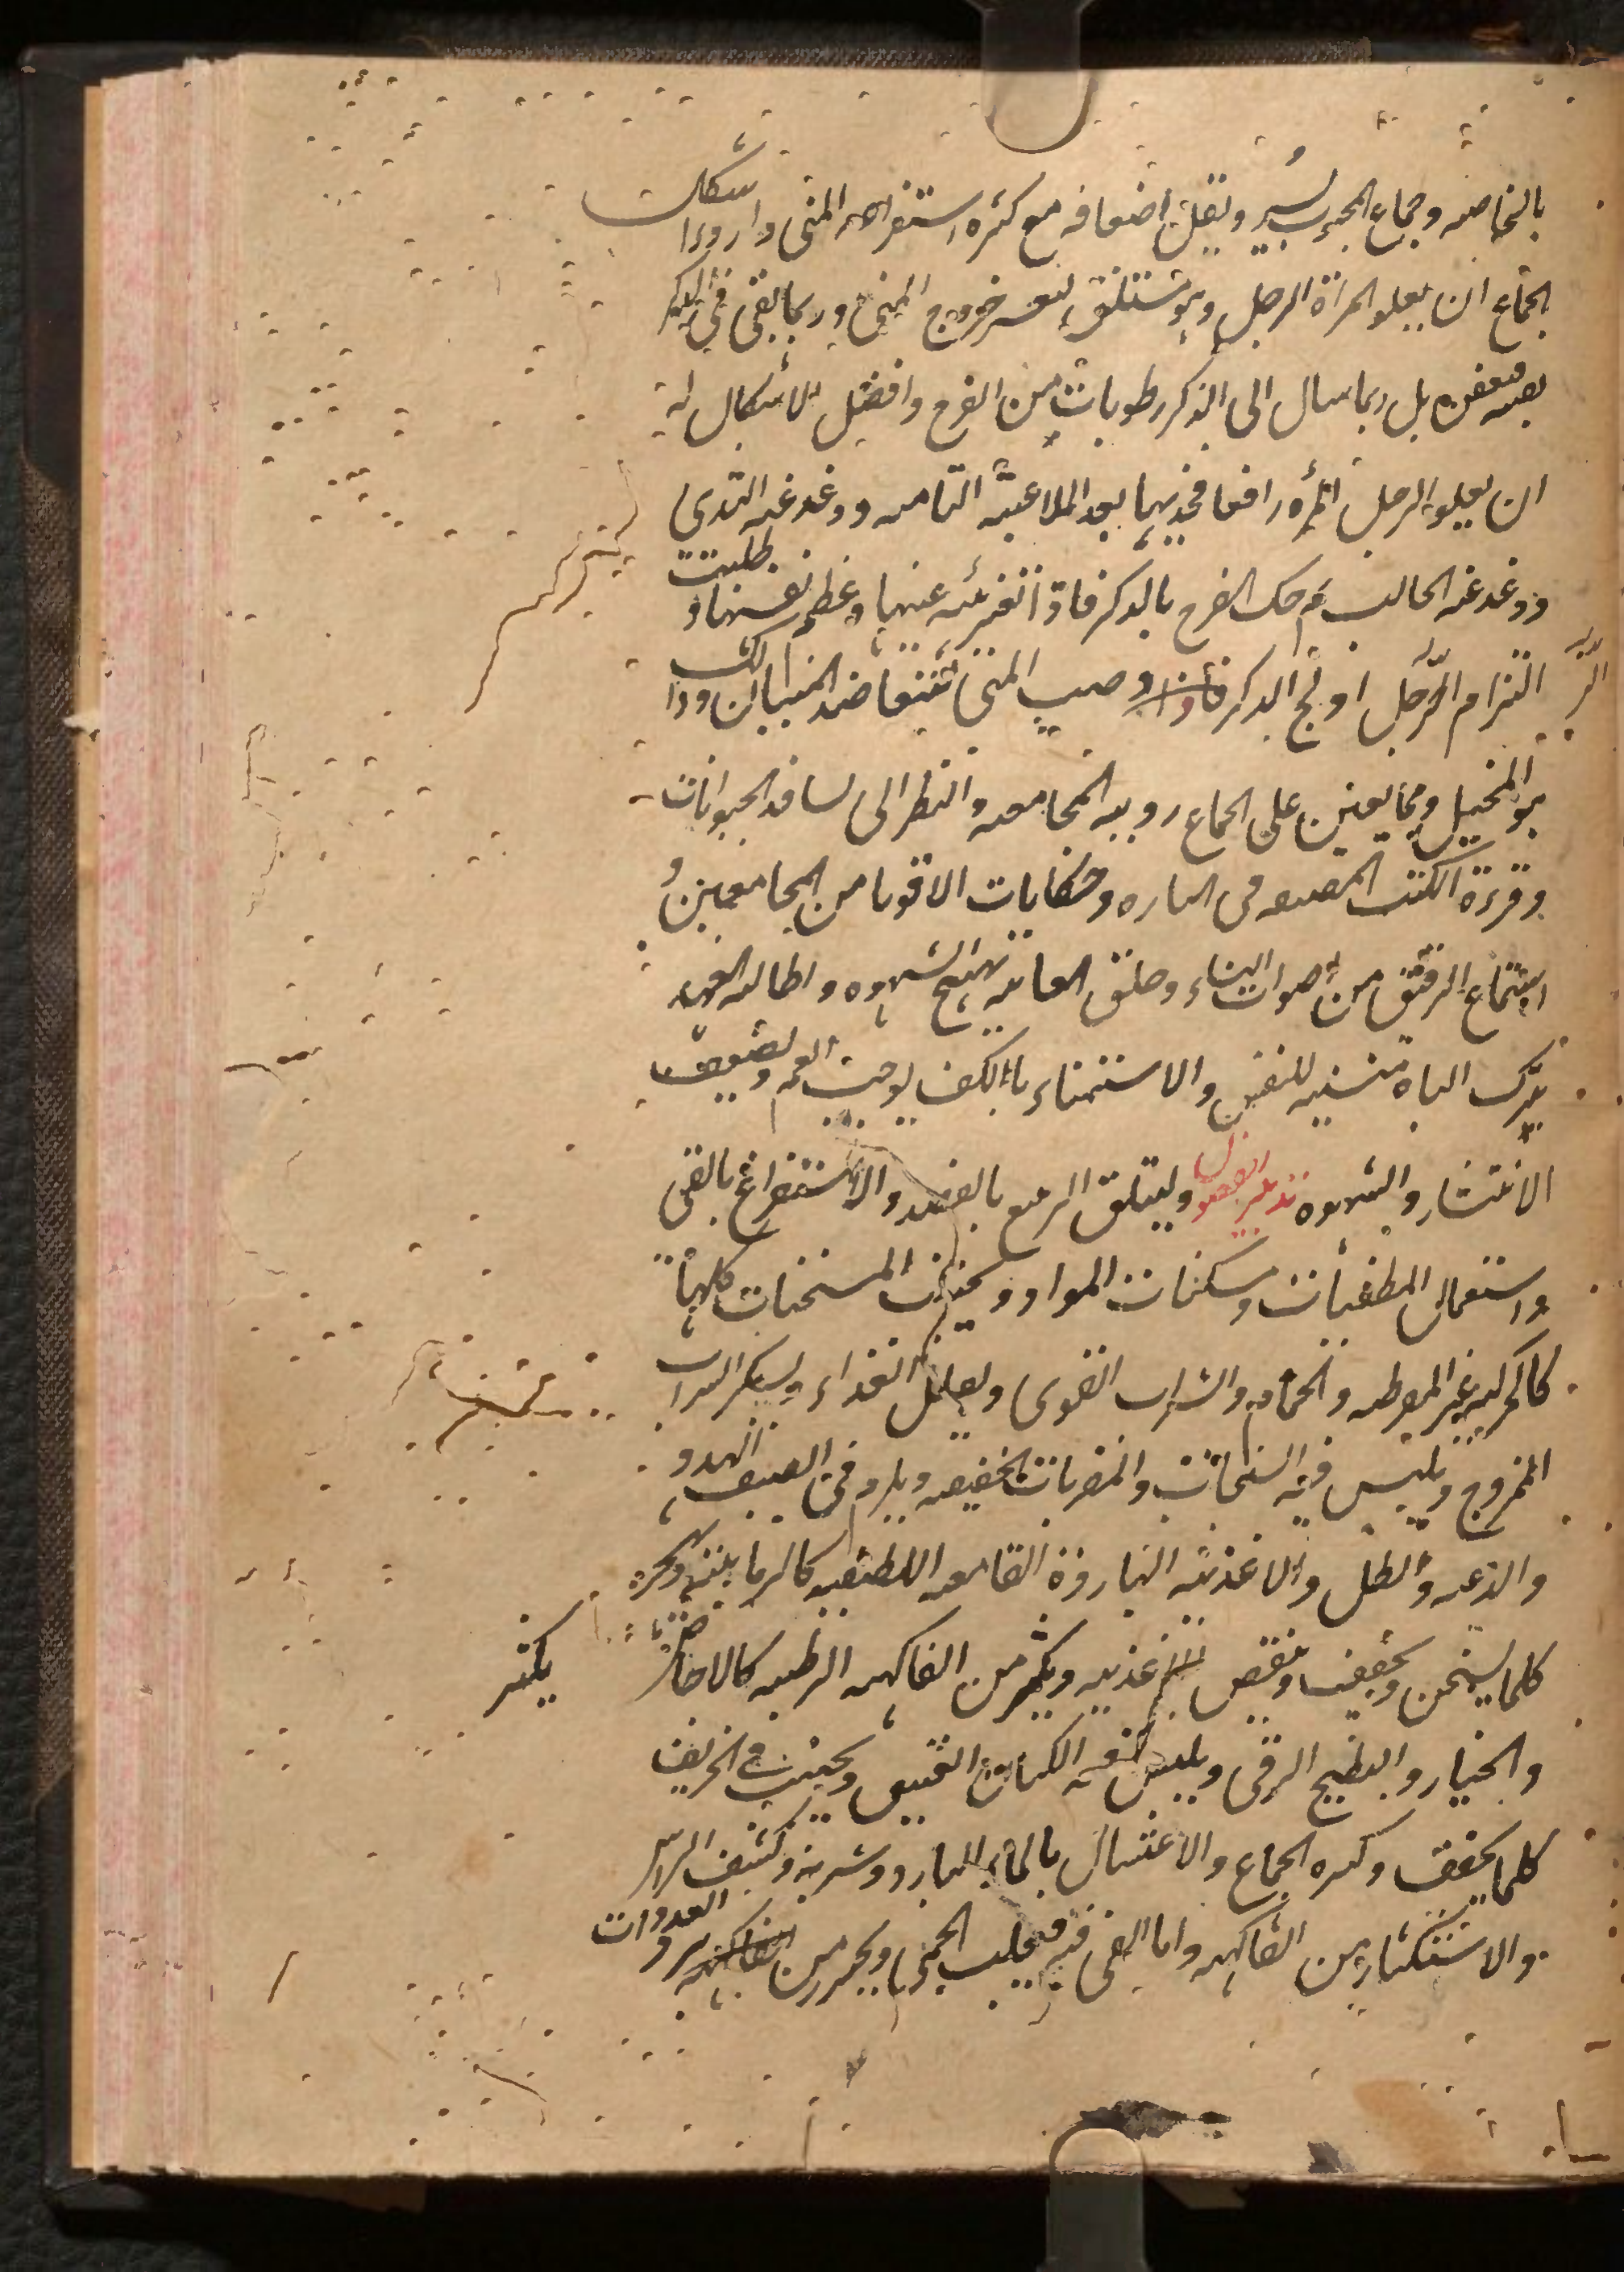 بالخاصه وجماع المحبوب يسر ويقل اضعافه مع كثره استفراغه المنى واردوا اشكال
الجماع ان يعلو المراة الرجل وهو مستلق لعسر خروج المنى وربما بقى فى الذكر
بقيه فعفن بل ربما سال الى الذكر رطوبات من الفرج وافضل الاشكال له
ان يعلو الرجل المرأه رافعا فخذيها بعد الملاعبة التامه ودغدغه الثدى
ودغدغه الحالب ثم حك الفرج بالذكر فاذا تغيرت عينيها وعظم نفسها وطلبت
التزام الرجل اولج الذكر وصب المنى ليتعاضد المنيان وذلك
هو المحبل ومما يعين على الجماع رويه المجامعه والنظر الى تسافد الحيوانات
وقرءة الكتب المصنفه فى الباه وحكايات الاقويا من المجامعين و
استماع الرقيق من اصوات النساء وحلق العانه تهيج الشهوه واطاله العهد
بترك الباه منسيه للنفس والاستمناء بالكف يوجب الغم ويضعف
الانتشار والشهوه تدبير الفصول وليتلق الربيع بالفصد والاستفراغ بالقى
واستعمال المطفئات ومسكنات المواد ويجتنب المسخنات كلها
كالحركه غير المفرطه والحمام والشراب القوى ويقلل الغذاء ويكثر الشراب
الممزوج ويلبس فيه السنجاب والمضربات الخفيفه ويلزم فى الصيف الهدو
والدعه والظل والاغذيه البارده القامعه اللطيفه كالرمانيه ويهجر
كلما يسخن ويجفف وينقص الاغذيه ويكثر من الفاكهه الرطبه كالاجاص
يكثر
والخيار والبطيخ الرقى ويلبس فيه الكتان العتيق ويجتنب فى الخريف
كلما يجفف وكثره الجماع والاغتسال بالماء البارد وشربه وكشف الراس
والاستكثار من الفاكهه واما القى فيه فيجلب الحمى ويحترز من برد الغدوات